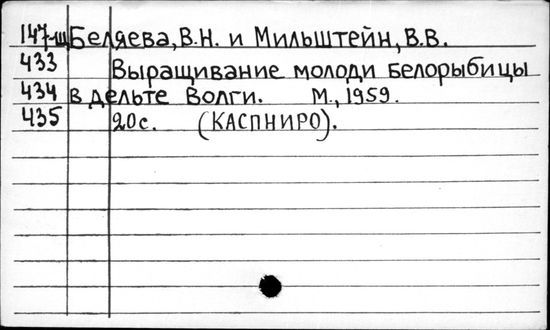 147-щ Беляева, В.Н. и Мильштейн, В.В.
433 Выращивание молоди белорыбицы
434 в дельте Волги. М., 1959.
435 20с. (КАСПНИРО).